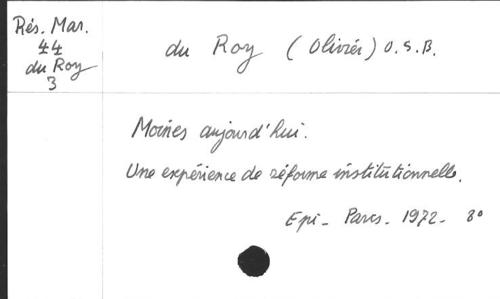 Rés. Mar.
44
du Roy
3
du Roy (Olivier) O.S.B.
Moines aujourd'hui.
Une expérience de réforme institutionnelle.
Epi - Paris - 1972 - 8°